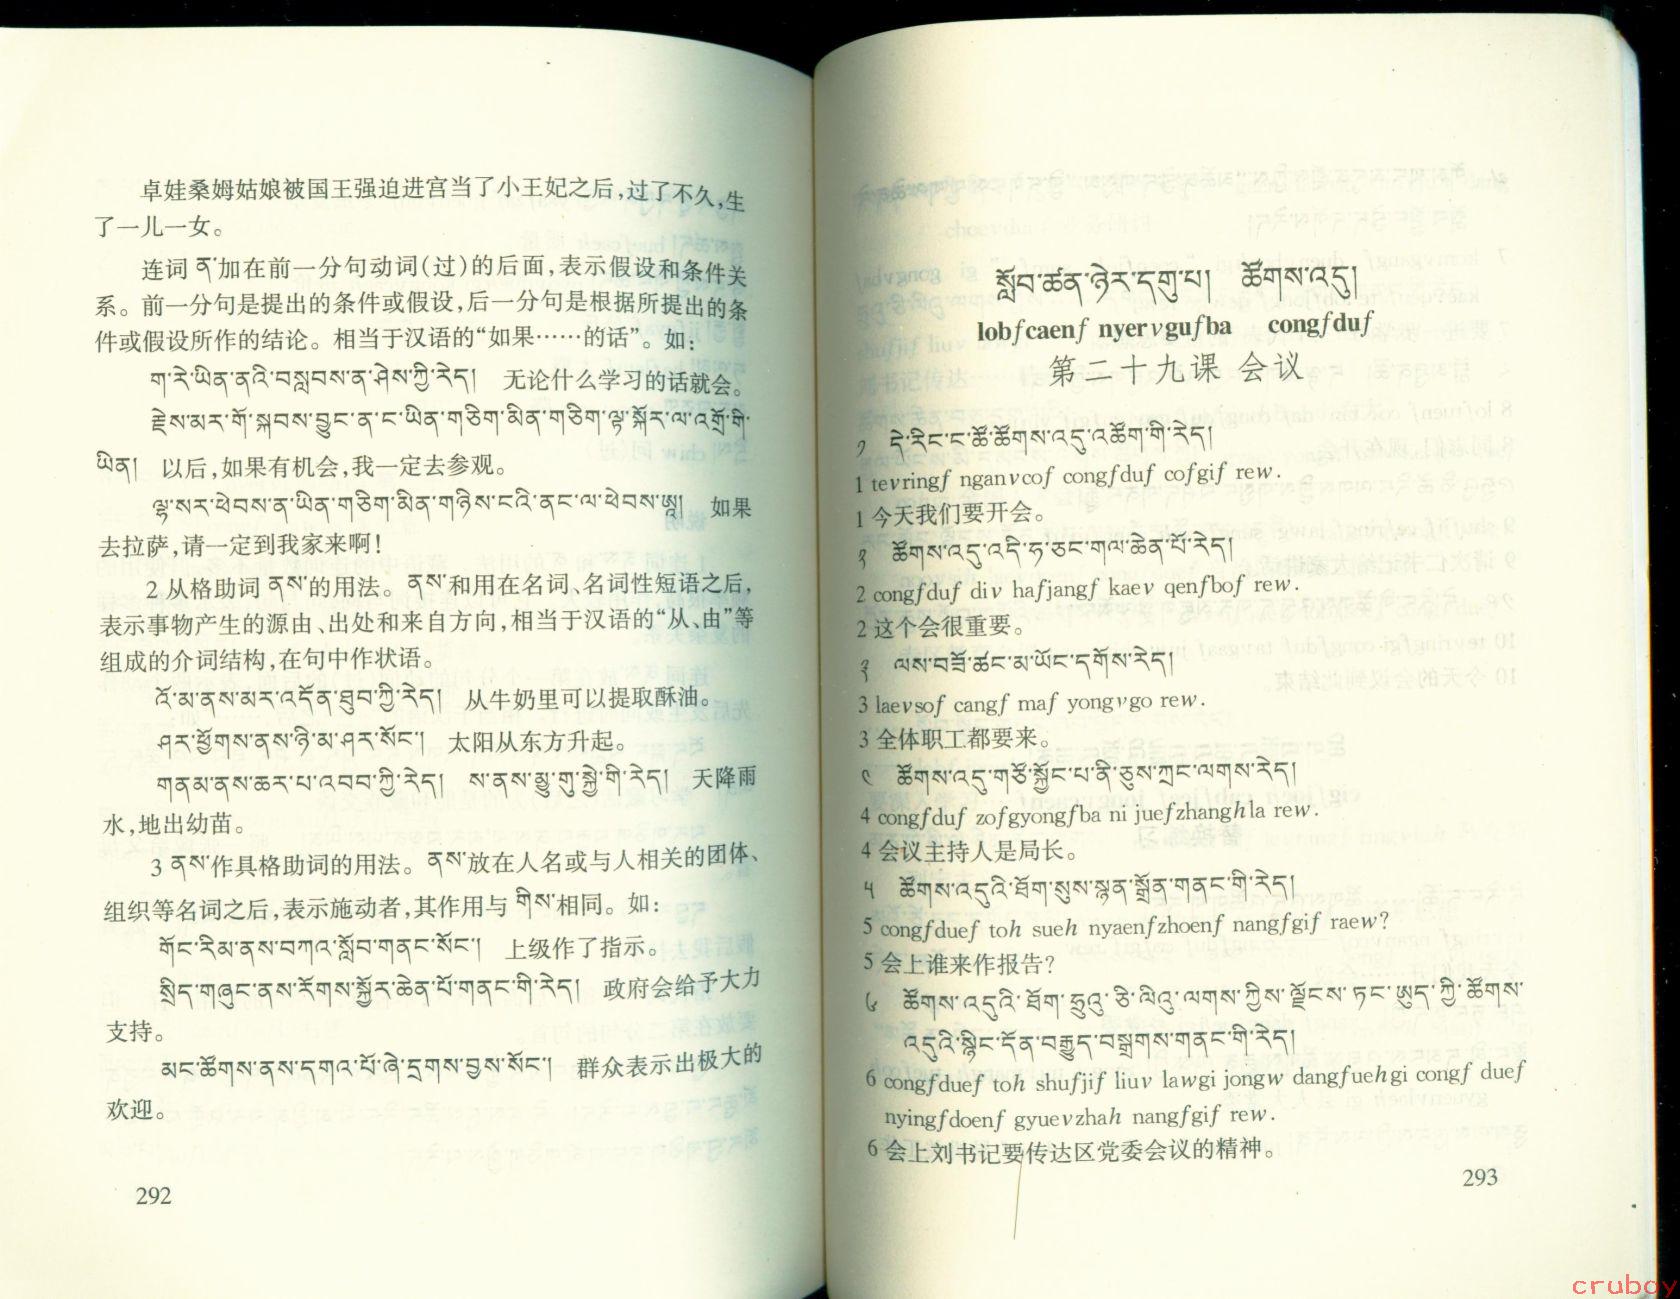 卓娃桑姆姑娘被国王强迫进宫当了小王妃之后,过了不久,生
了一儿一女。
连词 ན་加在前一分句动词(过)的后面,表示假设和条件关
系。前一分句是提出的条件或假设,后一分句是根据所提出的条
件或假设所作的结论。相当于汉语的“如果……的话”。如:
ག་རེ་ཡིན་ནའི་བསླབས་ན་ཤེས་ཀྱི་རེད། 无论什么学习的话就会。
རྗེས་མར་གོ་སྐབས་བྱུང་ན་ང་ཡིན་གཅིག་མིན་གཅིག་ལྟ་སྐོར་ལ་འགྲོ་གི་
ཡིན། 以后,如果有机会,我一定去参观。
ལྷ་སར་ཕེབས་ན་ཡིན་གཅིག་མིན་གཉིས་ངའི་ནང་ལ་ཕེབས་ཨཱ། 如果
去拉萨,请一定到我家来啊!
2 从格助词 ནས་的用法。ནས་和用在名词、名词性短语之后,
表示事物产生的源由、出处和来自方向,相当于汉语的“从、由”等
组成的介词结构,在句中作状语。
འོ་མ་ནས་མར་འདོན་ཐུབ་ཀྱི་རེད། 从牛奶里可以提取酥油。
ཤར་ཕྱོགས་ནས་ཉི་མ་ཤར་སོང་། 太阳从东方升起。
གནམ་ནས་ཆར་པ་འབབ་ཀྱི་རེད། ས་ནས་མྱུ་གུ་སྐྱེ་གི་རེད། 天降雨
水,地出幼苗。
3 ནས་作具格助词的用法。ནས་放在人名或与人相关的团体、
组织等名词之后,表示施动者,其作用与 གིས་相同。如:
གོང་རིམ་ནས་བཀའ་སློབ་གནང་སོང་། 上级作了指示。
སྲིད་གཞུང་ནས་རོགས་སྐྱོར་ཆེན་པོ་གནང་གི་རེད། 政府会给予大力
支持。
མང་ཚོགས་ནས་དགའ་པོ་ཞེ་དྲགས་བྱས་སོང་། 群众表示出极大的
欢迎。
292
སློབ་ཚན་ཉེར་དགུ་པ། ཚོགས་འདུ།
lobfcaenf nyervgufba congfduf
第二十九课 会议
༡ དེ་རིང་ང་ཚོ་ཚོགས་འདུ་འཚོག་གི་རེད།
1 tevringf nganvcof congfduf cofgif rew.
1 今天我们要开会。
༢ ཚོགས་འདུ་འདི་ཧ་ཅང་གལ་ཆེན་པོ་རེད།
2 congfduf div hafjangf kaev qenfbof rew.
2 这个会很重要。
༣ ལས་བཟོ་ཚང་མ་ཡོང་དགོས་རེད།
3 laevsof cangf maf yongvgo rew.
3 全体职工都要来。
༤ ཚོགས་འདུ་གཙོ་སྐྱོང་པ་ནི་ཅུས་ཀྲང་ལགས་རེད།
4 congfduf zofgyongfba ni juefzhanghla rew.
4 会议主持人是局长。
༥ ཚོགས་འདུའི་ཐོག་སུས་སྙན་སྒྲོན་གནང་གི་རེད།
5 congfduef toh sueh nyaenfzhoenf nangfgif raew?
5 会上谁来作报告?
༦ ཚོགས་འདུའི་ཐོག་ཧྲུའུ་ཅི་ལིའུ་ལགས་ཀྱིས་ལྗོངས་ཏང་ཨུད་ཀྱི་ཚོགས་
འདུའི་སྙིང་དོན་བརྒྱུད་བསྒྲགས་གནང་གི་རེད།
6 congfduef toh shufjif liuv lawgi jongw dangfuehgi congf duef
nyingfdoenf gyuevzhah nangfgif rew.
6 会上刘书记要传达区党委会议的精神。
293
cruboy